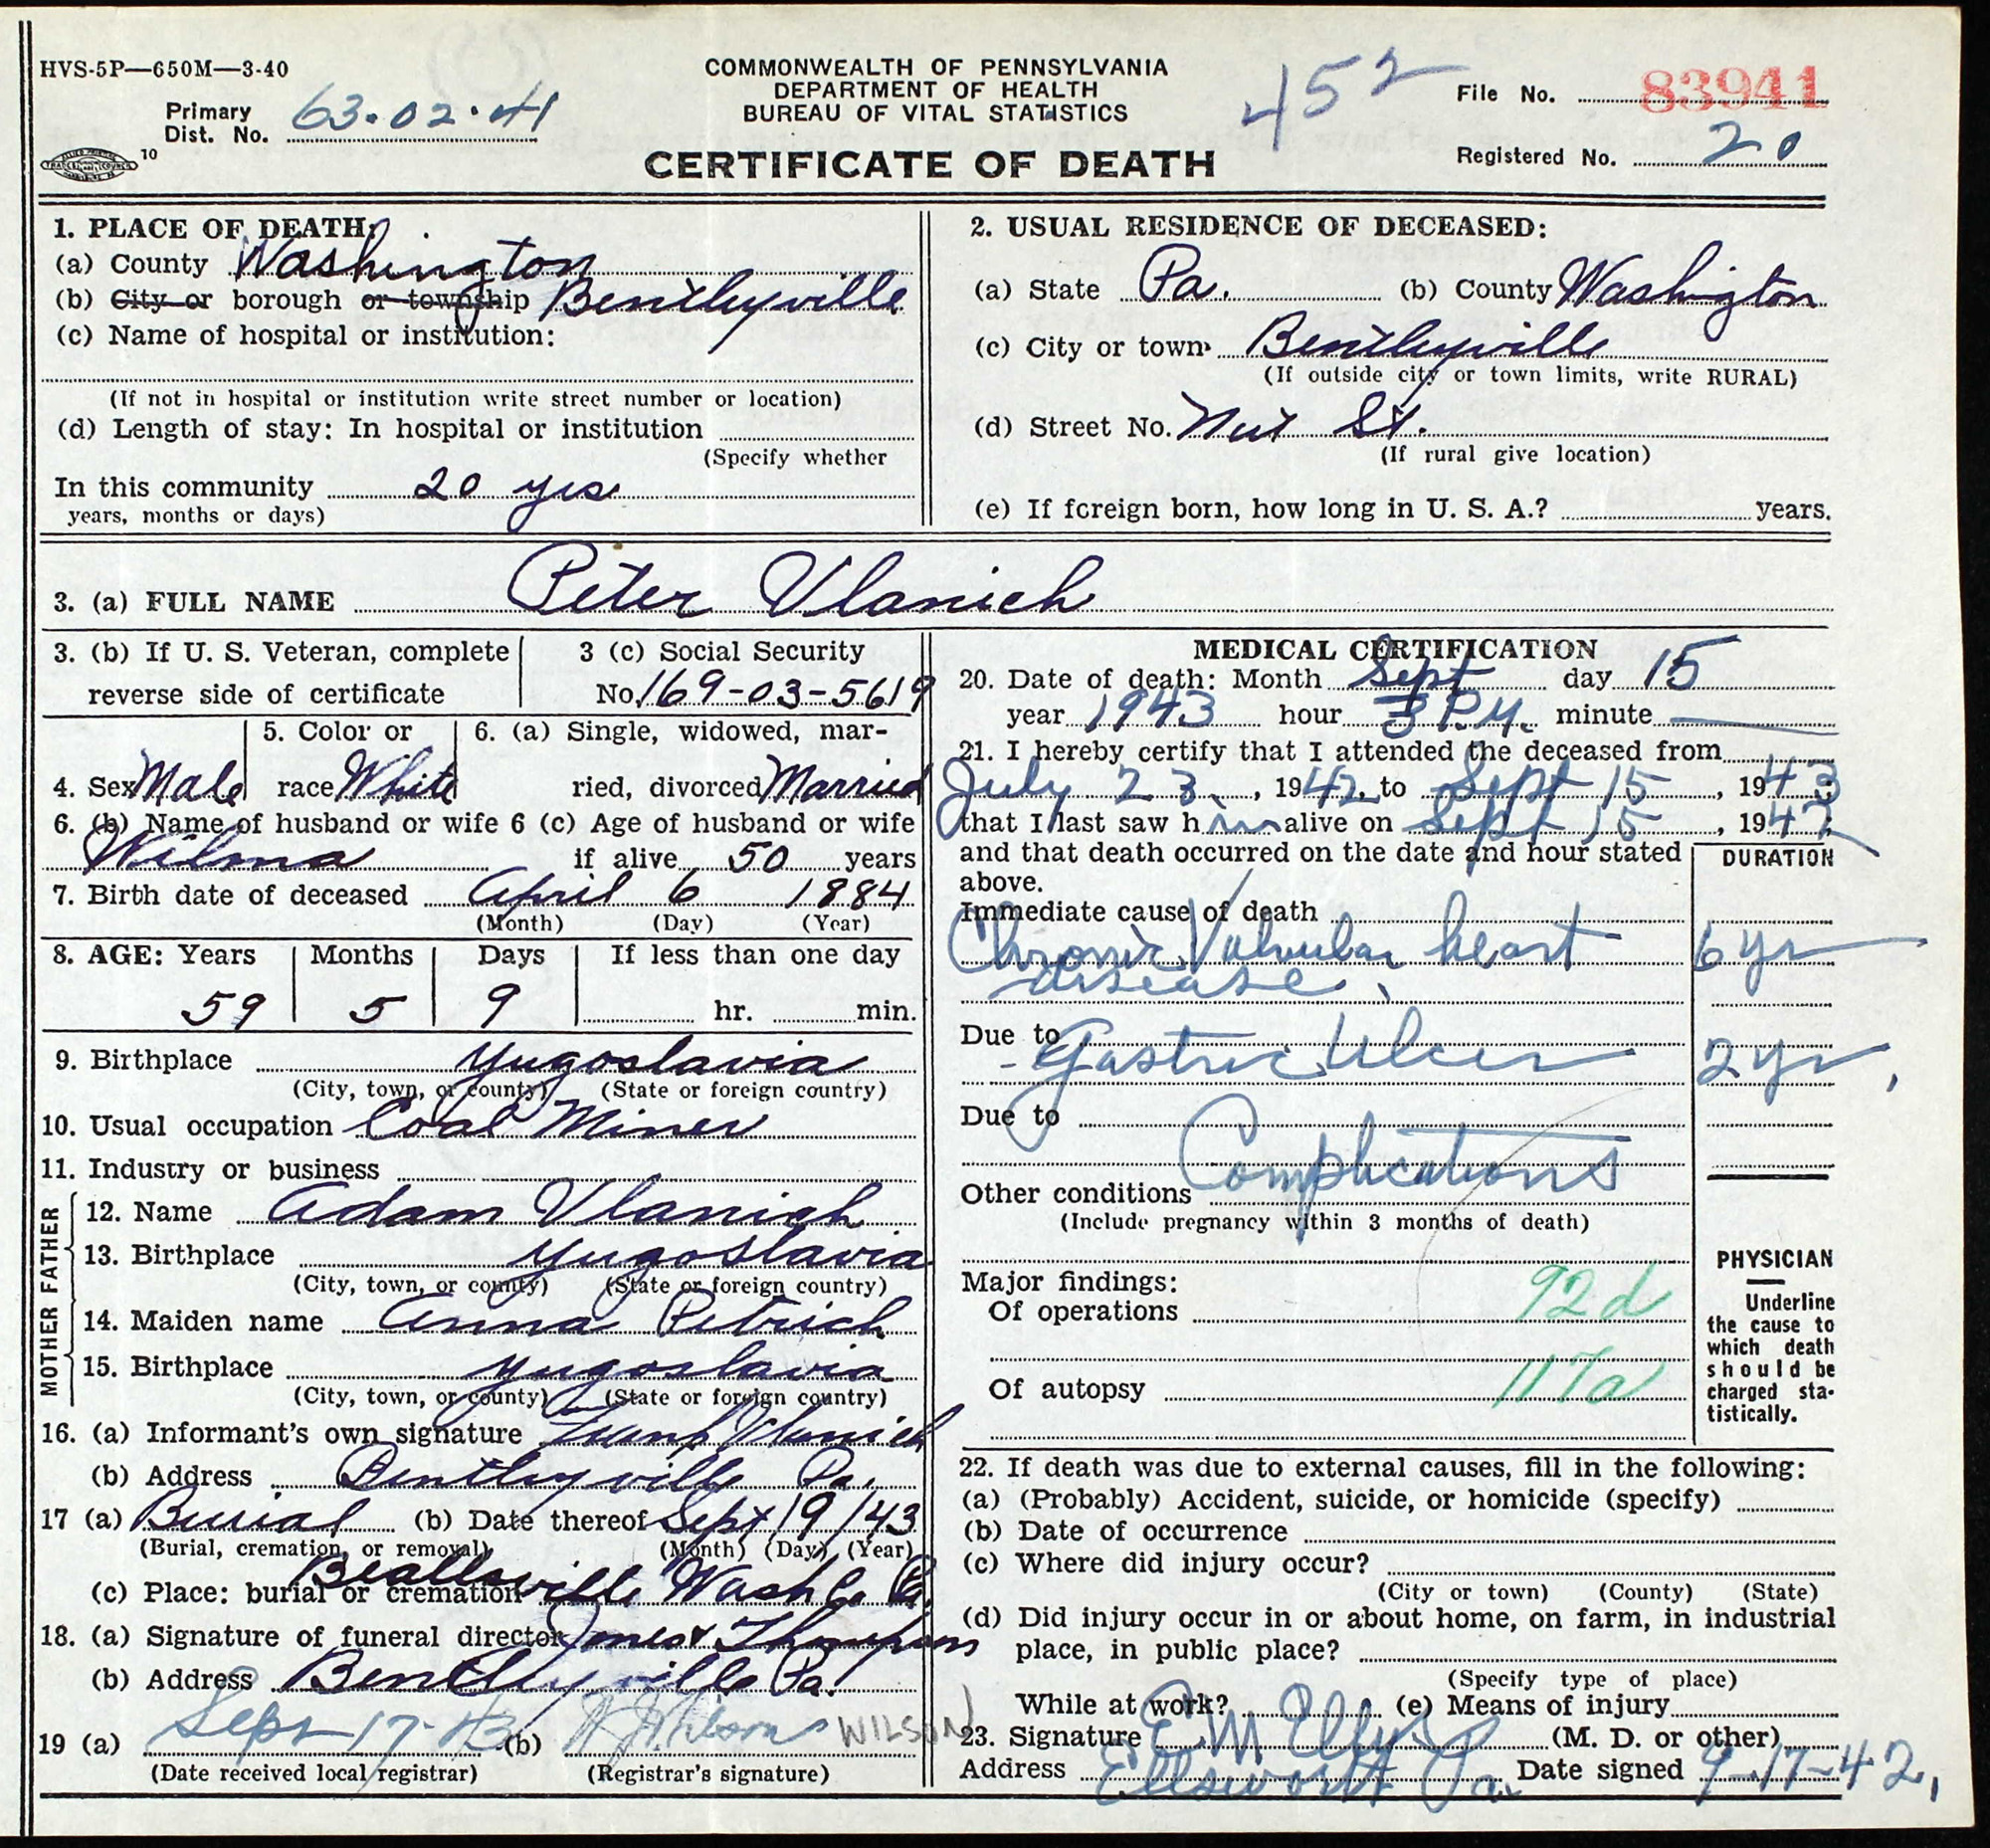 HVS-5P—650M—3-40
COMMONWEALTH OF PENNSYLVANIA
DEPARTMENT OF HEALTH
BUREAU OF VITAL STATISTICS
452
File No. 83941
Primary
Dist. No. 63.02.41
10
CERTIFICATE OF DEATH
Registered No. 20
1. PLACE OF DEATH:
(a) County Washington
(b) City or borough or township Bentleyville
(c) Name of hospital or institution:
(If not in hospital or institution write street number or location)
(d) Length of stay: In hospital or institution
(Specify whether
In this community 20 yrs
years, months or days)
2. USUAL RESIDENCE OF DECEASED:
(a) State Pa. (b) County Washington
(c) City or town Bentleyville
(If outside city or town limits, write RURAL)
(d) Street No. Nut St.
(If rural give location)
(e) If foreign born, how long in U. S. A.? years.
3. (a) FULL NAME Peter Vlanich
3. (b) If U. S. Veteran, complete
reverse side of certificate
3 (c) Social Security
No. 169-03-5619
4. Sex Male
5. Color or
race White
6. (a) Single, widowed, mar-
ried, divorced Married
6. (b) Name of husband or wife
Wilma
6 (c) Age of husband or wife
if alive 50 years
7. Birth date of deceased April 6 1884
(Month) (Day) (Year)
8. AGE: Years Months Days If less than one day
59 5 9 hr. min.
9. Birthplace Yugoslavia
(City, town, or county) (State or foreign country)
10. Usual occupation Coal Miner
11. Industry or business
FATHER
12. Name Adam Vlanich
13. Birthplace Yugoslavia
(City, town, or county) (State or foreign country)
MOTHER
14. Maiden name Anna Petrich
15. Birthplace Yugoslavia
(City, town, or county) (State or foreign country)
16. (a) Informant's own signature Frank Vlanich
(b) Address Bentleyville Pa.
17 (a) Burial (b) Date thereof Sept 19/43
(Burial, cremation, or removal) (Month) (Day) (Year)
(c) Place: burial or cremation Beallsville Wash Co Pa.
18. (a) Signature of funeral director Jones & Thompson
(b) Address Bentleyville Pa.
19 (a) Sept 17-43 (b) Wilson WILSON
(Date received local registrar) (Registrar's signature)
MEDICAL CERTIFICATION
20. Date of death: Month Sept day 15
year 1943 hour 3 P.M. minute
21. I hereby certify that I attended the deceased from
July 23, 1942, to Sept 15, 1943;
that I last saw him alive on Sept 15, 1942;
and that death occurred on the date and hour stated
above.
DURATION
Immediate cause of death
Chronic Valvular heart 6 yr
disease.
Due to
- Gastric Ulcer 2 yr,
Due to
Complications
Other conditions
(Include pregnancy within 3 months of death)
Major findings:
Of operations 92d
Of autopsy 117a
PHYSICIAN
Underline
the cause to
which death
should be
charged sta-
tistically.
22. If death was due to external causes, fill in the following:
(a) (Probably) Accident, suicide, or homicide (specify)
(b) Date of occurrence
(c) Where did injury occur?
(City or town) (County) (State)
(d) Did injury occur in or about home, on farm, in industrial
place, in public place?
(Specify type of place)
While at work? (e) Means of injury
23. Signature E M Ely (M. D. or other)
Address Ellsworth Pa. Date signed 9-17-42,